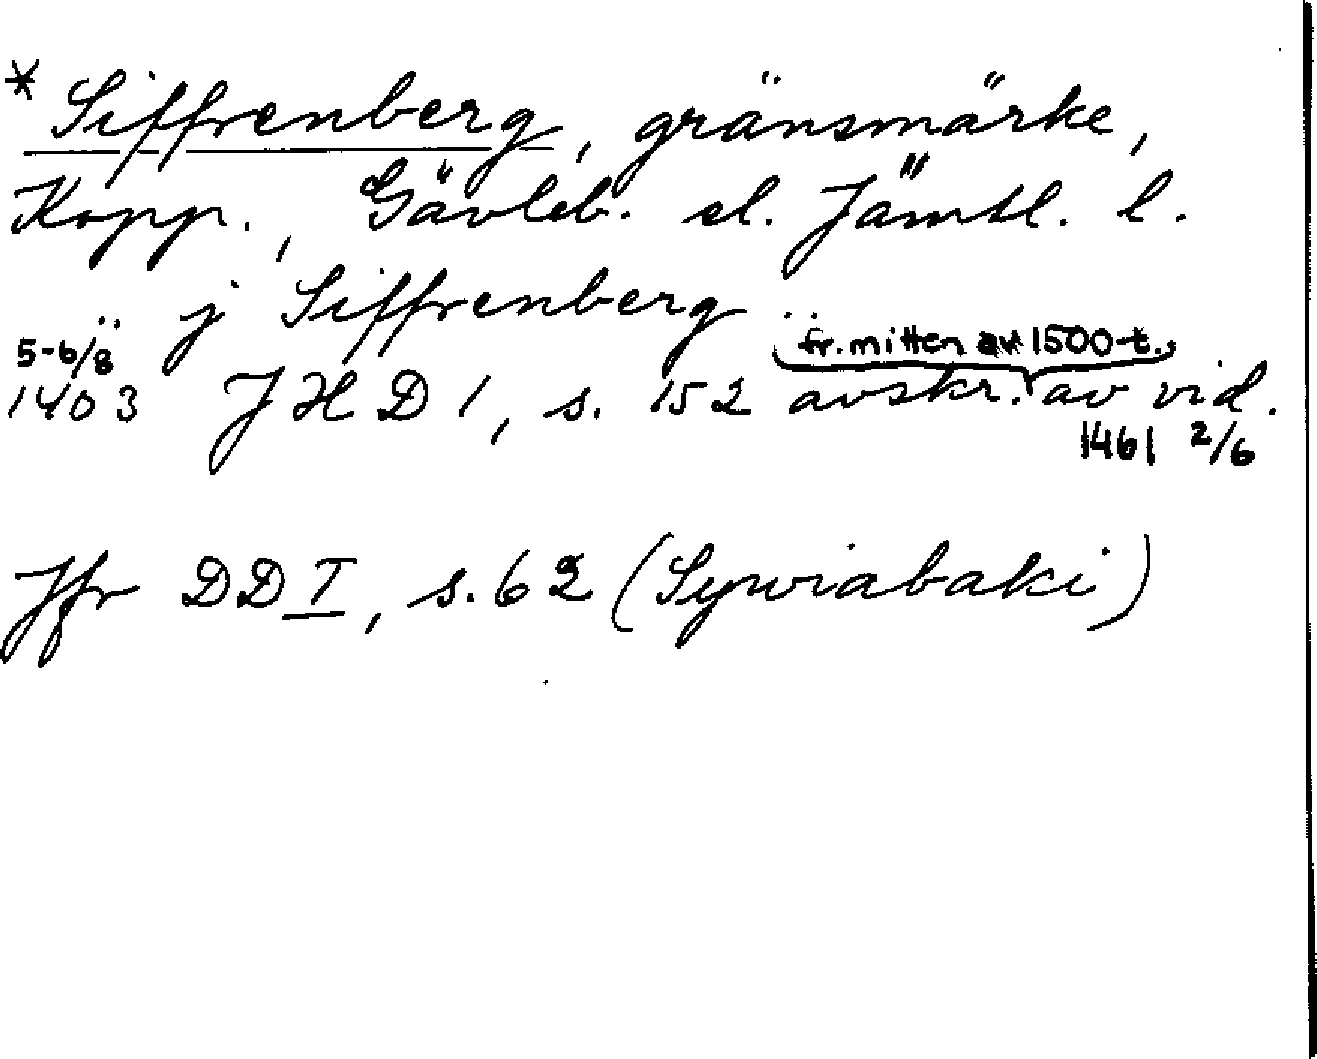 * Siffrenberg, gränsmärke,
Kopp., Gävleb. el. Jämtl. l.
.. j Siffrenberg ..
5-6/8 fr. mitten av 1500-t.
1403 JHD 1, s. 152 avskr. av vid.
1461 2/6
Jfr DD I, s. 62 (Sywiabaki)